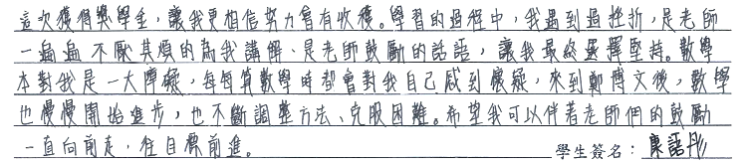 這次獲得獎學金，讓我更相信努力會有收穫。學習的過程中，我遇到過挫折，是老師
一遍遍不厭其煩的為我講解、是老師鼓勵的話語，讓我最終選擇堅持。數學
本對我是一大障礙，每每算數學時都會對我自己感到懷疑，來到鄭博文後，數學
也慢慢開始進步，也不斷調整方法、克服困難。希望我可以伴著老師們的鼓勵
一直向前走，往目標前進。 學生簽名：康語彤